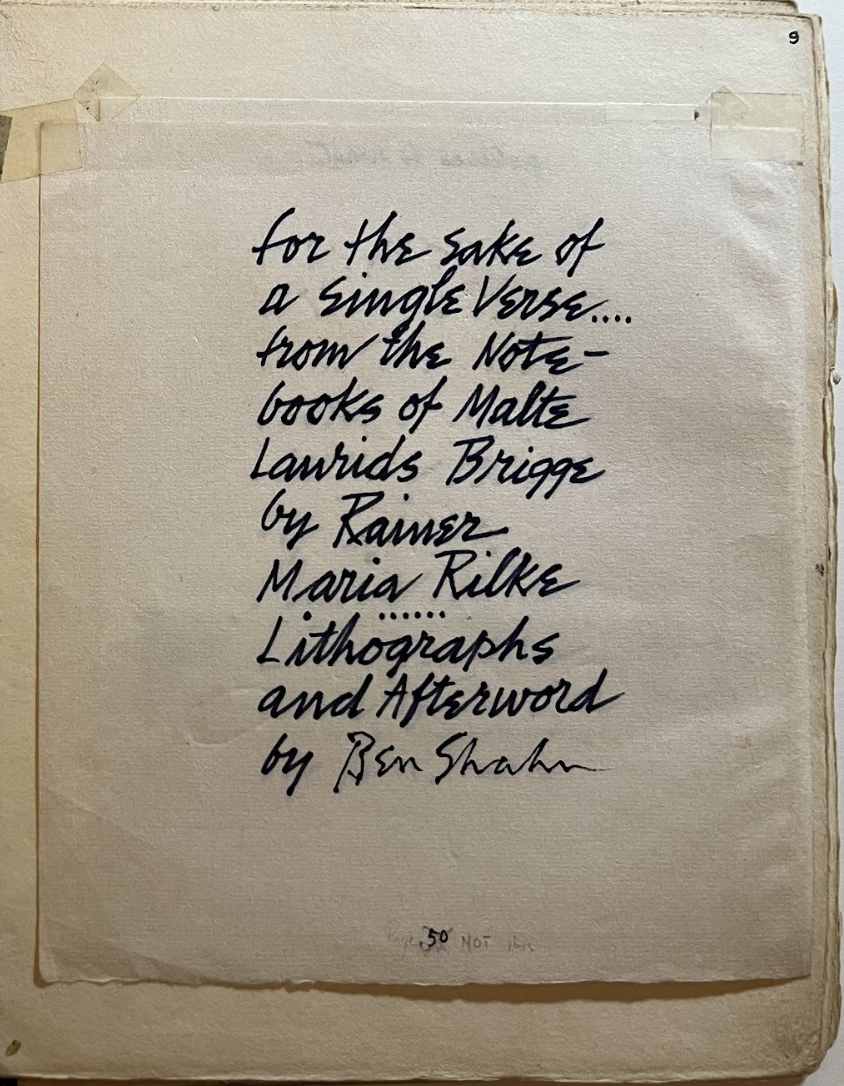 9
for the sake of
a single Verse....
from the Note-
books of Malte
Laurids Brigge
by Rainer
Maria Rilke
......
Lithographs
and Afterword
by Ben Shahn
50 NOT